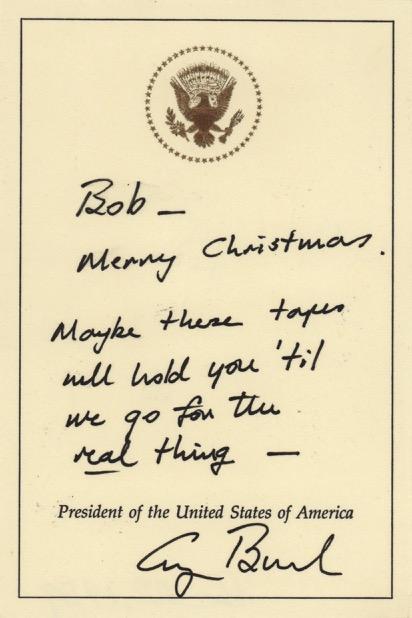 Bob —
Merry Christmas.
Maybe these tapes
will hold you 'til
we go for the
real thing —
President of the United States of America
G Bush